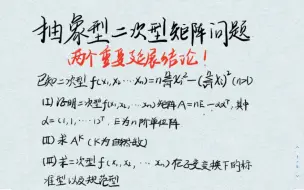 抽象型二次型矩阵问题
两个重要延展结论!
已知二次型 f(x₁,x₂,⋯xₙ)=n∑xᵢ²-(∑xᵢ)² (n>1)
(I) 证明二次型f(x₁,x₂,⋯,xₙ)矩阵A=nE-ααᵀ,其中
α=(1,1,⋯,1)ᵀ,E为n阶单位阵
(II) 求 Aᴷ (K为自然数)
(III) 求二次型 f(x₁,x₂,⋯,xₙ)在正交变换下的标
准型以及规范型